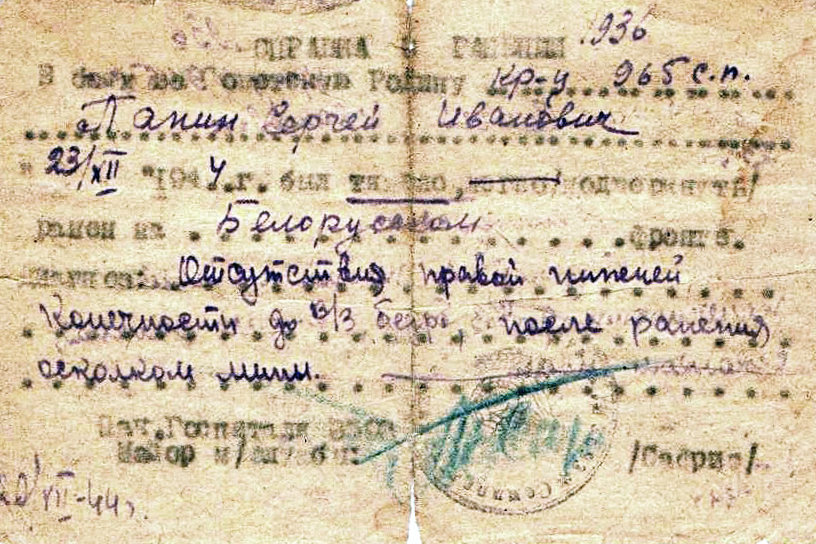 СПРАВКА о РАНЕНИИ 1936
В боях за Советскую Родину кр-ц 965 с.п.
Папин Сергей Иванович
"23/XII "1944.г. был тяжело, легко/подчеркнуть/
ранен на Белорусском фронте.
Диагноз: Отсутствия правой нижней
Конечности до в/3 бедр, после ранения
осколком мины.
Нач.Госпиталя
Майор м/службы /Сафрис/
XII-44г.